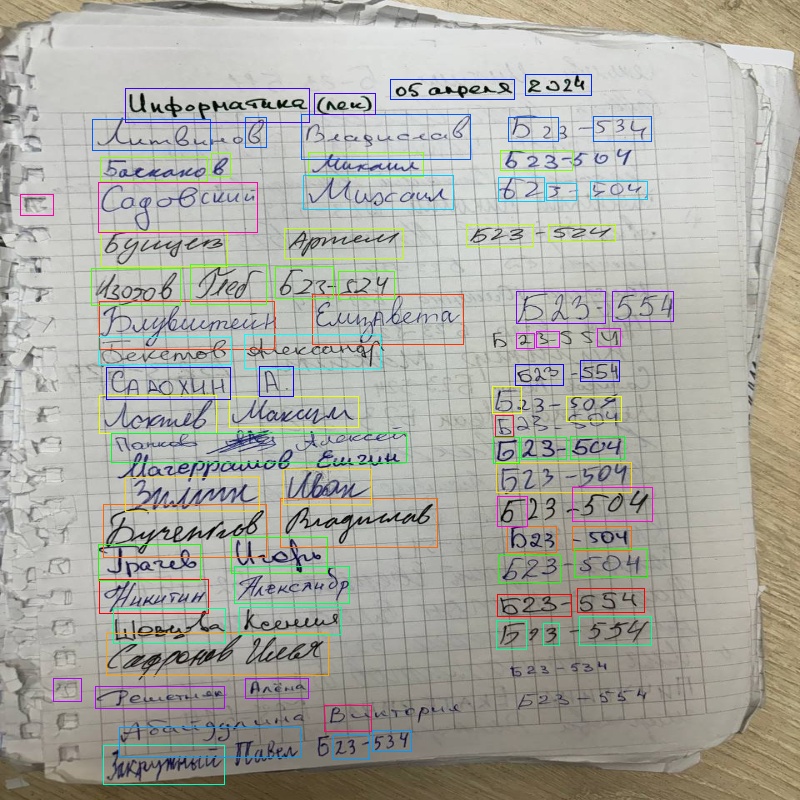 Информатика (лек) 05 апреля 2024
Литвинов Владислав Б23-534
Баскаков Михаил Б23-504
Садовский Михаил Б23-504
Бущуев Артем Б23-524
Изотов Глеб Б23-524
Блувштейн Елизавета Б23-554
Бекетов Александр Б23-554
Садохин А. Б23-554
Локтев Максим Б23-504
Попков Алексей Б23-504
Магеррамов Ельгин Б23-504
Зиммин Иван Б23-504
Бученков Владислав Б23-504
Грачев Игорь Б23-504
Никитин Александр Б23-504
Шовкова Ксения Б23-554
Сафронов Илья Б23-554
Решетняк Алёна Б23-534
Абайдуллина Виктория Б23-554
Закружный Павел Б23-534